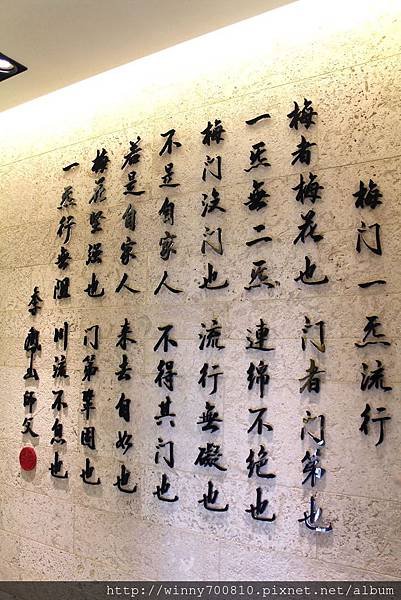 梅门一炁流行
梅者梅花也 门者门第也
一炁無二炁 連绵不绝也
梅门没门也 流行無礙也
不是自家人 不得其门也
若是自家人 来去自如也
梅花坚强也 门第鞏固也
一炁行無阻 川流不息也
李鳳山師父
http://winny700810.pixnet.net/album